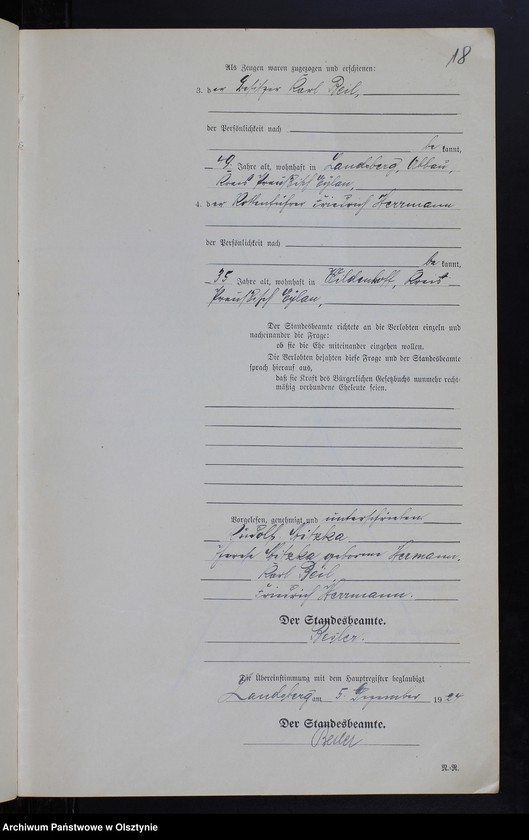 18
Als Zeugen waren zugezogen und erschienen:
3. der Besitzer Karl Beil,
der Persönlichkeit nach
be kannt,
49 Jahre alt, wohnhaft in Landsberg, Abbau,
Kreis Preußisch Eylau,
4. der Rottenführer Friedrich Herrmann
der Persönlichkeit nach
be kannt,
35 Jahre alt, wohnhaft in Wildenhoff, Kreis
Preußisch Eylau,
Der Standesbeamte richtete an die Verlobten einzeln und
nacheinander die Frage:
ob sie die Ehe miteinander eingehen wollen.
Die Verlobten bejahten diese Frage und der Standesbeamte
sprach hierauf aus,
daß sie kraft des Bürgerlichen Gesetzbuchs nunmehr recht-
mäßig verbundene Eheleute seien.
Vorgelesen, genehmigt und unterschrieben
Rudolf
geborene Herrmann.
Karl Beil
Friedrich Herrmann.
Der Standesbeamte.
Die Übereinstimmung mit dem Hauptregister beglaubigt
Landsberg am 5. Dezember 19
Der Standesbeamte.
N.-R.
Archiwum Państwowe w Olsztynie